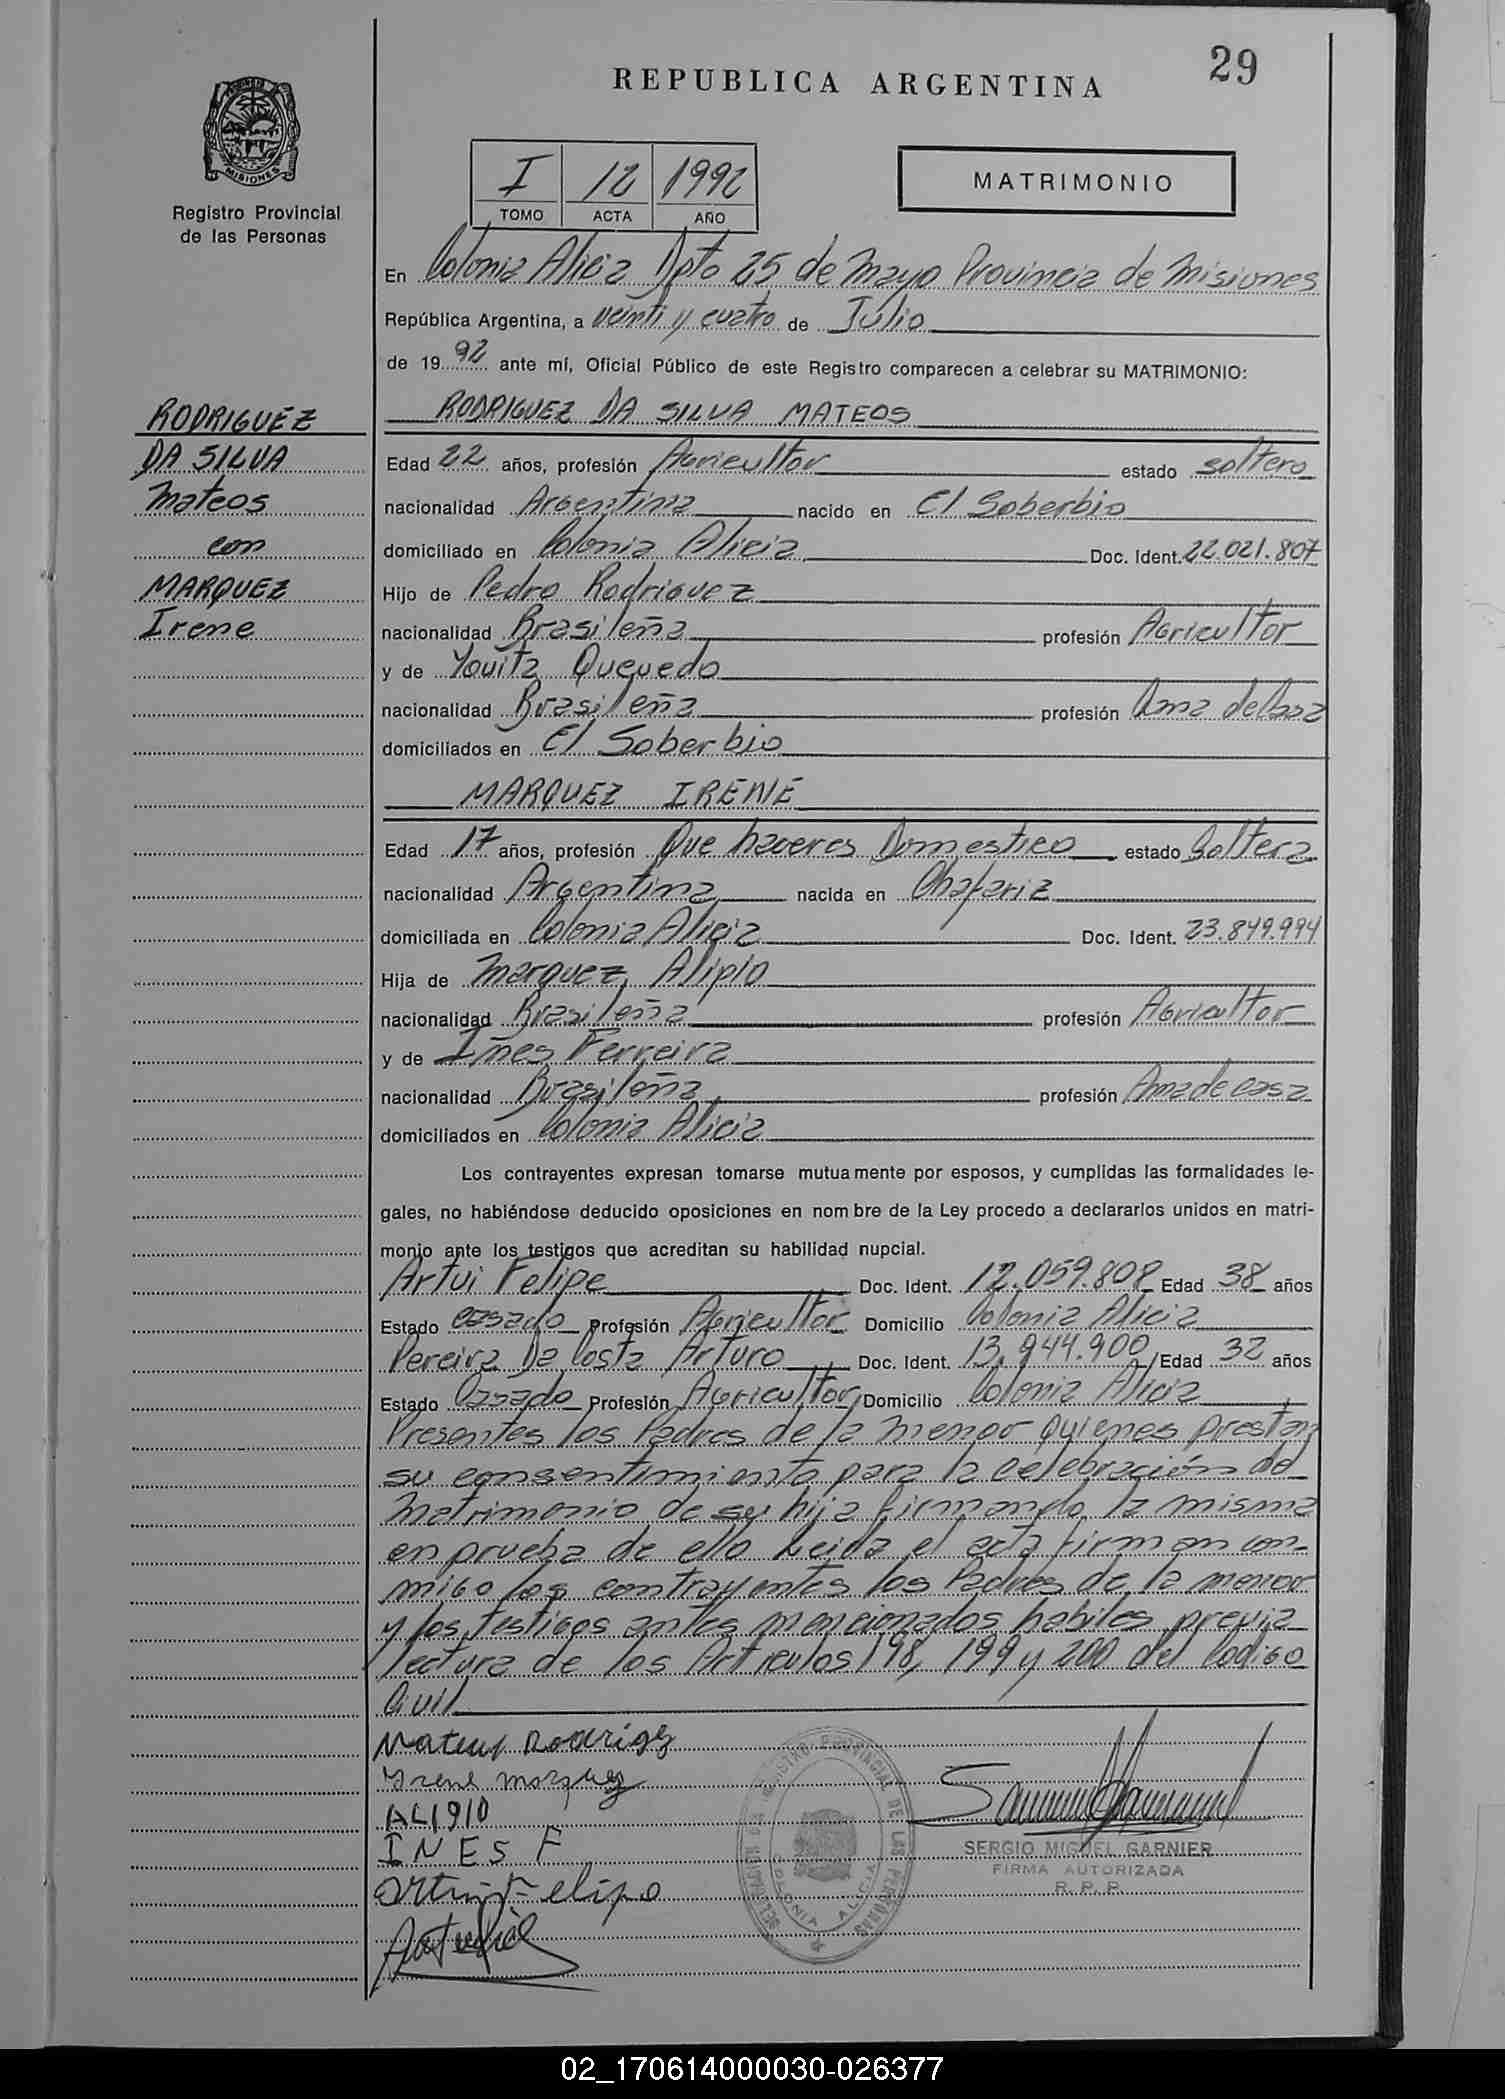 29
REPUBLICA ARGENTINA
MISIONES
Registro Provincial
de las Personas
I 12 1992
TOMO ACTA AÑO
MATRIMONIO
En Colonia Alicia Dpto 25 de Mayo Provincia de Misiones
República Argentina, a veinti y cuatro de Julio
de 19 92 ante mí, Oficial Público de este Registro comparecen a celebrar su MATRIMONIO:
RODRIGUEZ
DA SILVA
Mateos
con
MARQUEZ
Irene
RODRIGUEZ DA SILVA MATEOS
Edad 22 años, profesión Agricultor estado soltero
nacionalidad Argentina nacido en El Soberbio
domiciliado en Colonia Alicia Doc. Ident. 22.021.807
Hijo de Pedro Rodriguez
nacionalidad Brasileña profesión Agricultor
y de Quevedo
nacionalidad Brasileña profesión Ama de
domiciliados en El Soberbio
MARQUEZ IRENE
Edad 17 años, profesión Que haceres Domestico estado Soltera
nacionalidad Argentina nacida en Chafariz
domiciliada en Colonia Alicia Doc. Ident. 23.849.994
Hija de Marquez, Alipio
nacionalidad Brasileña profesión Agricultor
y de Ines Ferreira
nacionalidad Brasileña profesión Ama de casa
domiciliados en Colonia Alicia
Los contrayentes expresan tomarse mutuamente por esposos, y cumplidas las formalidades le-
gales, no habiéndose deducido oposiciones en nombre de la Ley procedo a declararlos unidos en matri-
monio ante los testigos que acreditan su habilidad nupcial.
Artui Felipe Doc. Ident. 12.059.808 Edad 38 años
Estado casado Profesión Agricultor Domicilio Colonia Alicia
Pereira Da Costa Arturo Doc. Ident. 13.944.900 Edad 32 años
Estado Casado Profesión Agricultor Domicilio Colonia Alicia
Presentes los Padres de la menor quienes prestan
su consentimiento para la celebración del
Matrimonio de su hija firmando la misma
en prueba de ello Leida el acta firman con-
migo los contrayentes los Padres de la menor
y los testigos antes mencionados habiles previa
lectura de los Articulos 198, 199 y 200 del Codigo
Civil
Irene Marquez
ALI910
INES F
SERGIO MIGUEL GARNIER
FIRMA AUTORIZADA
R. P. P.
REGISTRO PROVINCIAL DE LAS PERSONAS
COLONIA ALICIA
02_170614000030-026377